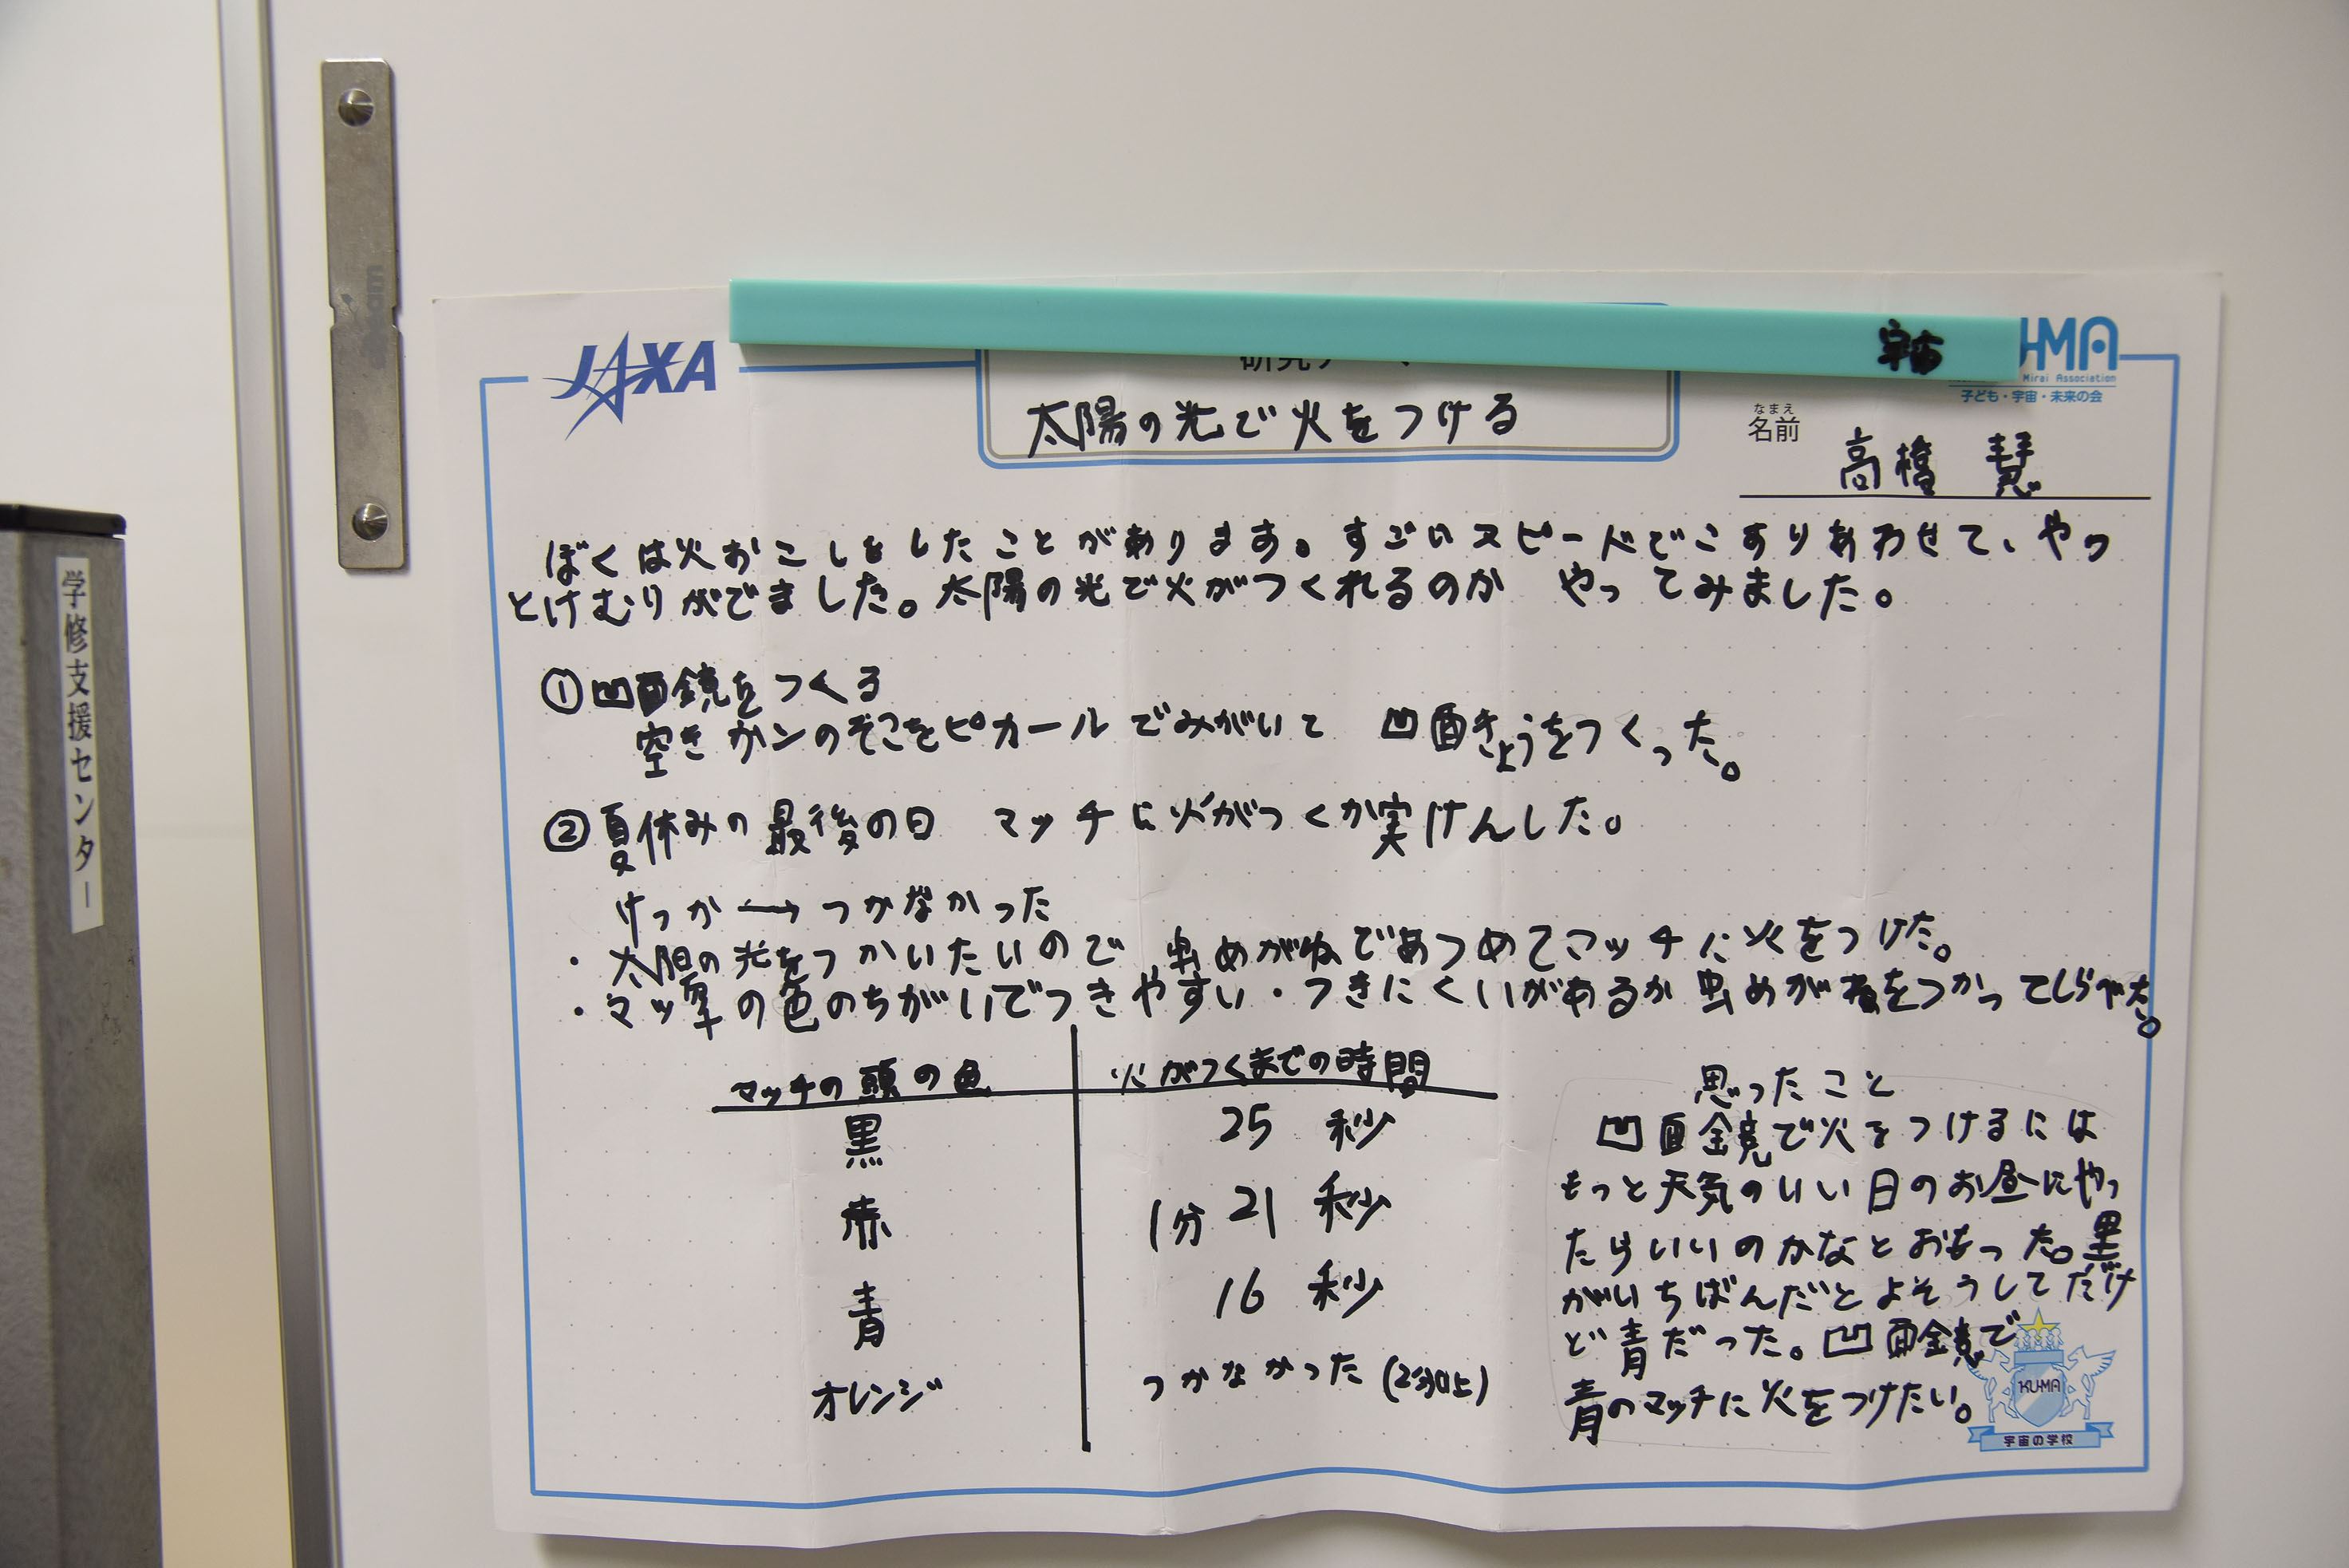 宇宙
JAXA
Mirai Association
子ども・宇宙・未来の会
太陽の光で火をつける
なまえ
名前
高橋 慧
ぼくは火おこしをしたことがあります。すごいスピードでこすりあわせて、やっ
とけむりがでました。太陽の光で火がつくれるのか やってみました。
①凹面鏡をつくる
空きカンのぞこをピカールでみがいて 凹面きょうをつくった。
②夏休みの最後の日 マッチに火がつくか実けんした。
けっか→つかなかった
・太陽の光をつかいたいので 虫めがねであつめてマッチに火をつけた。
・マッチの色のちがいでつきやすい・つきにくいがあるか虫めがねをつかってしらべた。
マッチの頭の色 火がつくまでの時間
黒 25 秒
赤 1分 21 秒
青 16 秒
オレンジ つかなかった (2分以上)
思ったこと
凹面鏡で火をつけるには
もっと天気のいい日のお昼にやっ
たらいいのかなとおもった。黒
がいちばんだとよそうしてだけ
ど青だった。凹面鏡で
青のマッチに火をつけたい。
KUMA
宇宙の学校
学修支援センター